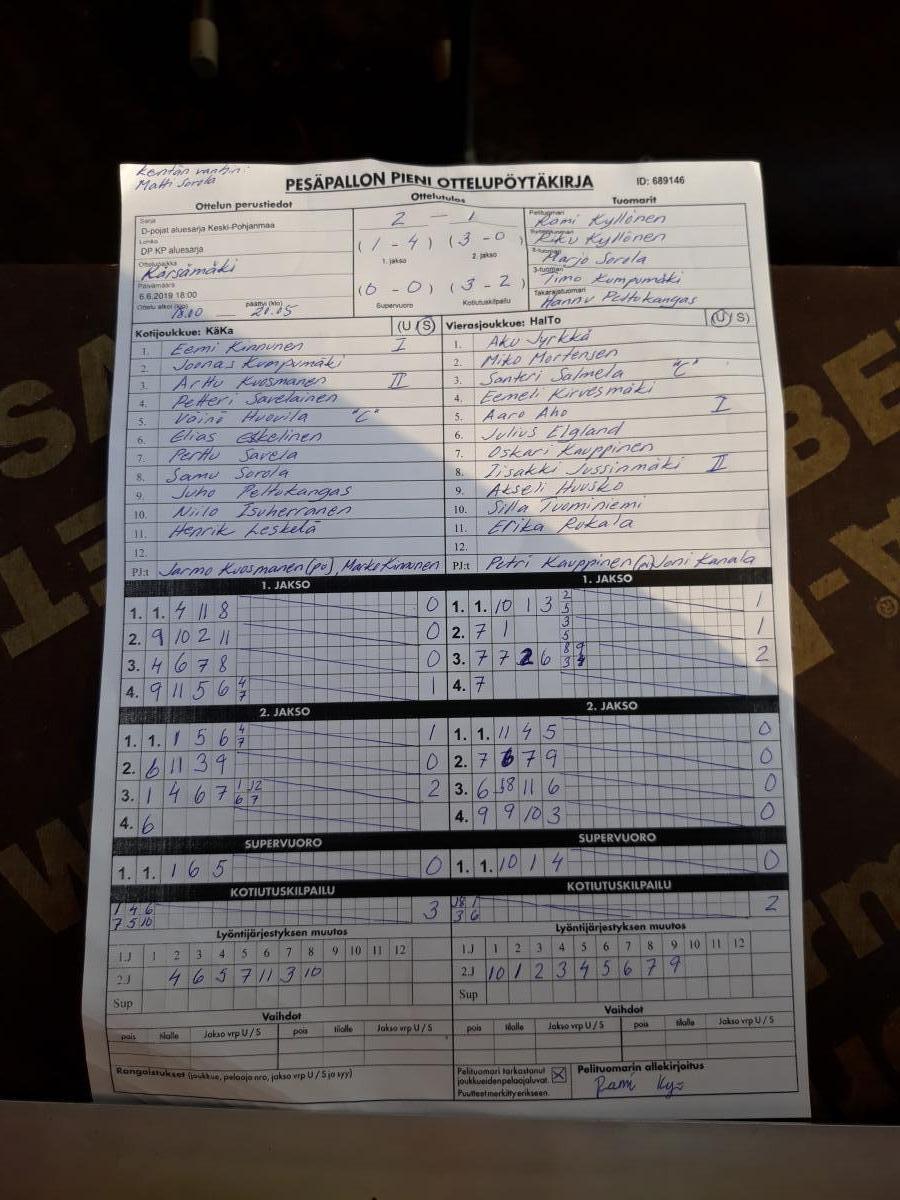 Kentän vanhin:
Matti Sorola
PESÄPALLON PIENI OTTELUPÖYTÄKIRJA
ID: 689146
Ottelun perustiedot
Ottelutulos
Tuomarit
Sarja
D-pojat aluesarja Keski-Pohjanmaa
Lohko
DP KP aluesarja
Ottelupaikka
Kärsämäki
Päivämäärä
6.6.2019 18:00
Ottelu alkoi (klo) päättyi (klo)
18.00 — 20.05
2 — 1
(1 - 4) (3 - 0)
1. jakso 2. jakso
(0 - 0) (3 - 2)
Supervuoro Kotiutuskilpailu
Pelituomari
Rami Kyllönen
Riku Kyllönen
2-tuomari
Marjo Sorola
3-tuomari
Timo Kumpumäki
Takarajatuomari
Hannu Peltokangas
Kotijoukkue: KäKa (U S)
1. Eemi Kinnunen I
2. Joonas Kumpumäki
3. Arttu Kuosmanen II
4. Petteri Savelainen
5. Väinö Huovila "C"
6. Elias Eskelinen
7. Perttu Savela
8. Samu Sorola
9. Juho Peltokangas
10. Niilo Isoherranen
11. Henrik Leskelä
12.
PJ:t Jarmo Kuosmanen (pv), Marko Kinnunen
Vierasjoukkue: HalTo (U S)
1. Aku Jyrkkä
2. Miko Mortensen
3. Santeri Salmela "C"
4. Eemeli Kirvesmäki
5. Aaro Aho I
6. Julius Elgland
7. Oskari Kauppinen
8. Iisakki Jussinmäki II
9. Akseli Huusko
10. Silla Tuominiemi
11. Erika Rukala
12.
PJ:t Petri Kauppinen Joni Kanala
1. JAKSO
1. 1. 4 11 8 0
2. 9 10 2 11 0
3. 4 6 7 8 0
4. 9 11 5 6 4 7 1
1. JAKSO
1. 1. 10 1 3 2 5 1
2. 7 1 3 5 1
3. 7 7 2 6 8 9 3 4 2
4. 7
2. JAKSO
1. 1. 1 5 6 4 7 1
2. 6 11 3 9 0
3. 1 4 6 7 1 12 6 7 2
4. 6
2. JAKSO
1. 1. 11 4 5 0
2. 7 6 7 9 0
3. 6 8 11 6 0
4. 9 9 10 3 0
SUPERVUORO
1. 1. 1 6 5 0
SUPERVUORO
1. 1. 10 1 4 0
KOTIUTUSKILPAILU
1 4 6
7 5 10
3
KOTIUTUSKILPAILU
3 6
2
Lyöntijärjestyksen muutos
1.J 1 2 3 4 5 6 7 8 9 10 11 12
2.J 4 6 5 7 11 3 10
Sup
Lyöntijärjestyksen muutos
1.J 1 2 3 4 5 6 7 8 9 10 11 12
2.J 10 1 2 3 4 5 6 7 9
Sup
Vaihdot
pois tilalle Jakso vrp U / S pois tilalle Jakso vrp U / S
Vaihdot
pois tilalle Jakso vrp U / S pois tilalle Jakso vrp U / S
Rangaistukset (joukkue, pelaaja nro, jakso vrp U / S ja syy)
Pelituomari tarkastanut
joukkueiden pelaajaluvat.
Puutteet merkitty erikseen.
Pelituomarin allekirjoitus
Rami